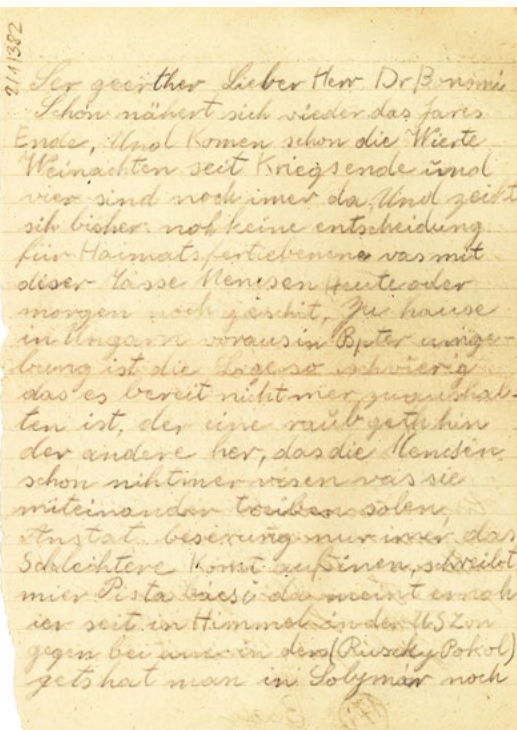 2/1/382
Ser geerther Lieber Herr Dr Bonomi
Schon nähert sich wieder das Jares
Ende, Und Komen schon die Wierte
Weinachten seit Kriegsende und
vier sind noch imer da, Und zeikt
sih bisher noh keine entscheidung
für Haimatsfertiebenene vas mit
diser Masse Mencsen heute oder
morgen noch geschit, Zu hause
in Ungarn voraus in Bpter umge-
bung ist die Lige so schvierig
das es bereit nicht mer zu aushal-
ten ist, der eine raubt geth hin
der andere her, das die Mencsen
schon niht imer vesen vas sie
miteinander treiben solen,
Anstat beserung nur imer das
Schleichtere Komt auf inen, schreibt
mier Pista bacsi da meint er noh
ier seit in Himmel in der US Zon
gegen bei uns in den (Ruszky Pokol)
gets hat man in Solymar noch